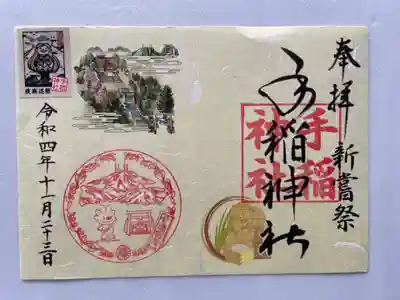 奉拝 新嘗祭
手稲神社
手稲
神社
令和四年十一月二十三日
疫病退散